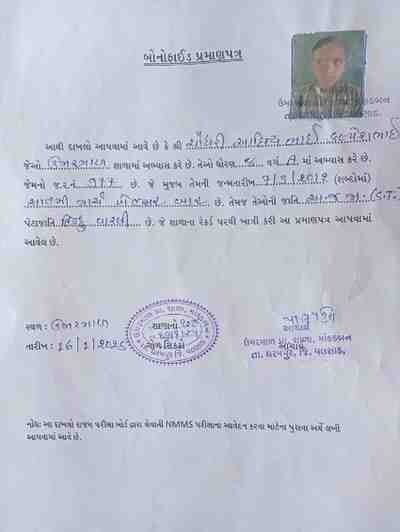 બોનોફાઈડ પ્રમાણપત્ર
આથી દાખલો આપવામાં આવે છે કે શ્રી ચૌધરી આદિત્ય ભાઈ કલ્પેશભાઈ
જેઓ ઉમરમાળ શાળામાં અભ્યાસ કરે છે. તેઓ ધોરણ ૮ વર્ગ A માં અભ્યાસ કરે છે.
જેમનો જ.ર.નં ૧૧૧ છે. જે મુજબ તેમની જન્મતારીખ ૭/૩/૨૦૧૨ (શબ્દોમાં)
સાતમી માર્ચ બે હજાર બાર છે. તેમજ તેઓની જાતિ અ.જ.જા. (S.T.)
પેટાજાતિ હિન્દુ વારલી છે. જે શાળાના રેકર્ડ પરથી ખાત્રી કરી આ પ્રમાણપત્ર આપવામાં
આવેલ છે.
સ્થળ : ઉમરમાળ
તારીખ :
શાળાનો
ગોળ સિક્કો
આચાર્ય
આચાર્ય
ઉમરમાળ પ્રા. શાળા,
તા. ધરમપુર, જિ. વલસાડ.
નોંધ: આ દાખલો રાજ્ય પરીક્ષા બોર્ડ દ્વારા લેવાતી NMMS પરીક્ષાના આવેદન કરવા માટેના પુરાવા અર્થે લખી
આપવામાં આવે છે.